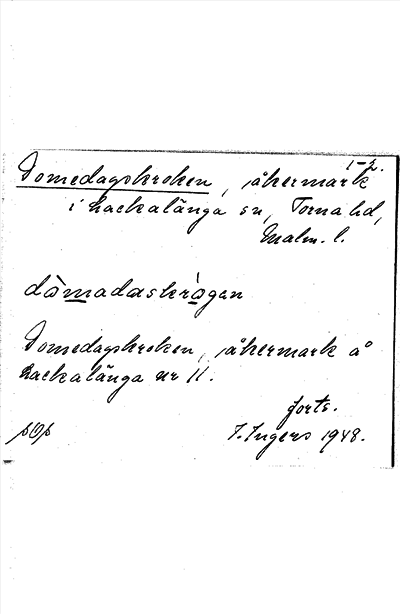 1-2.
Domedagskroken, åkermark
i Lackalänga sn, Torna hd,
Malm. l.
dòmadaskrògan
Domedagskroken, åkermark å
Lackalänga nr 11.
forts.
I. Ingers 1948.